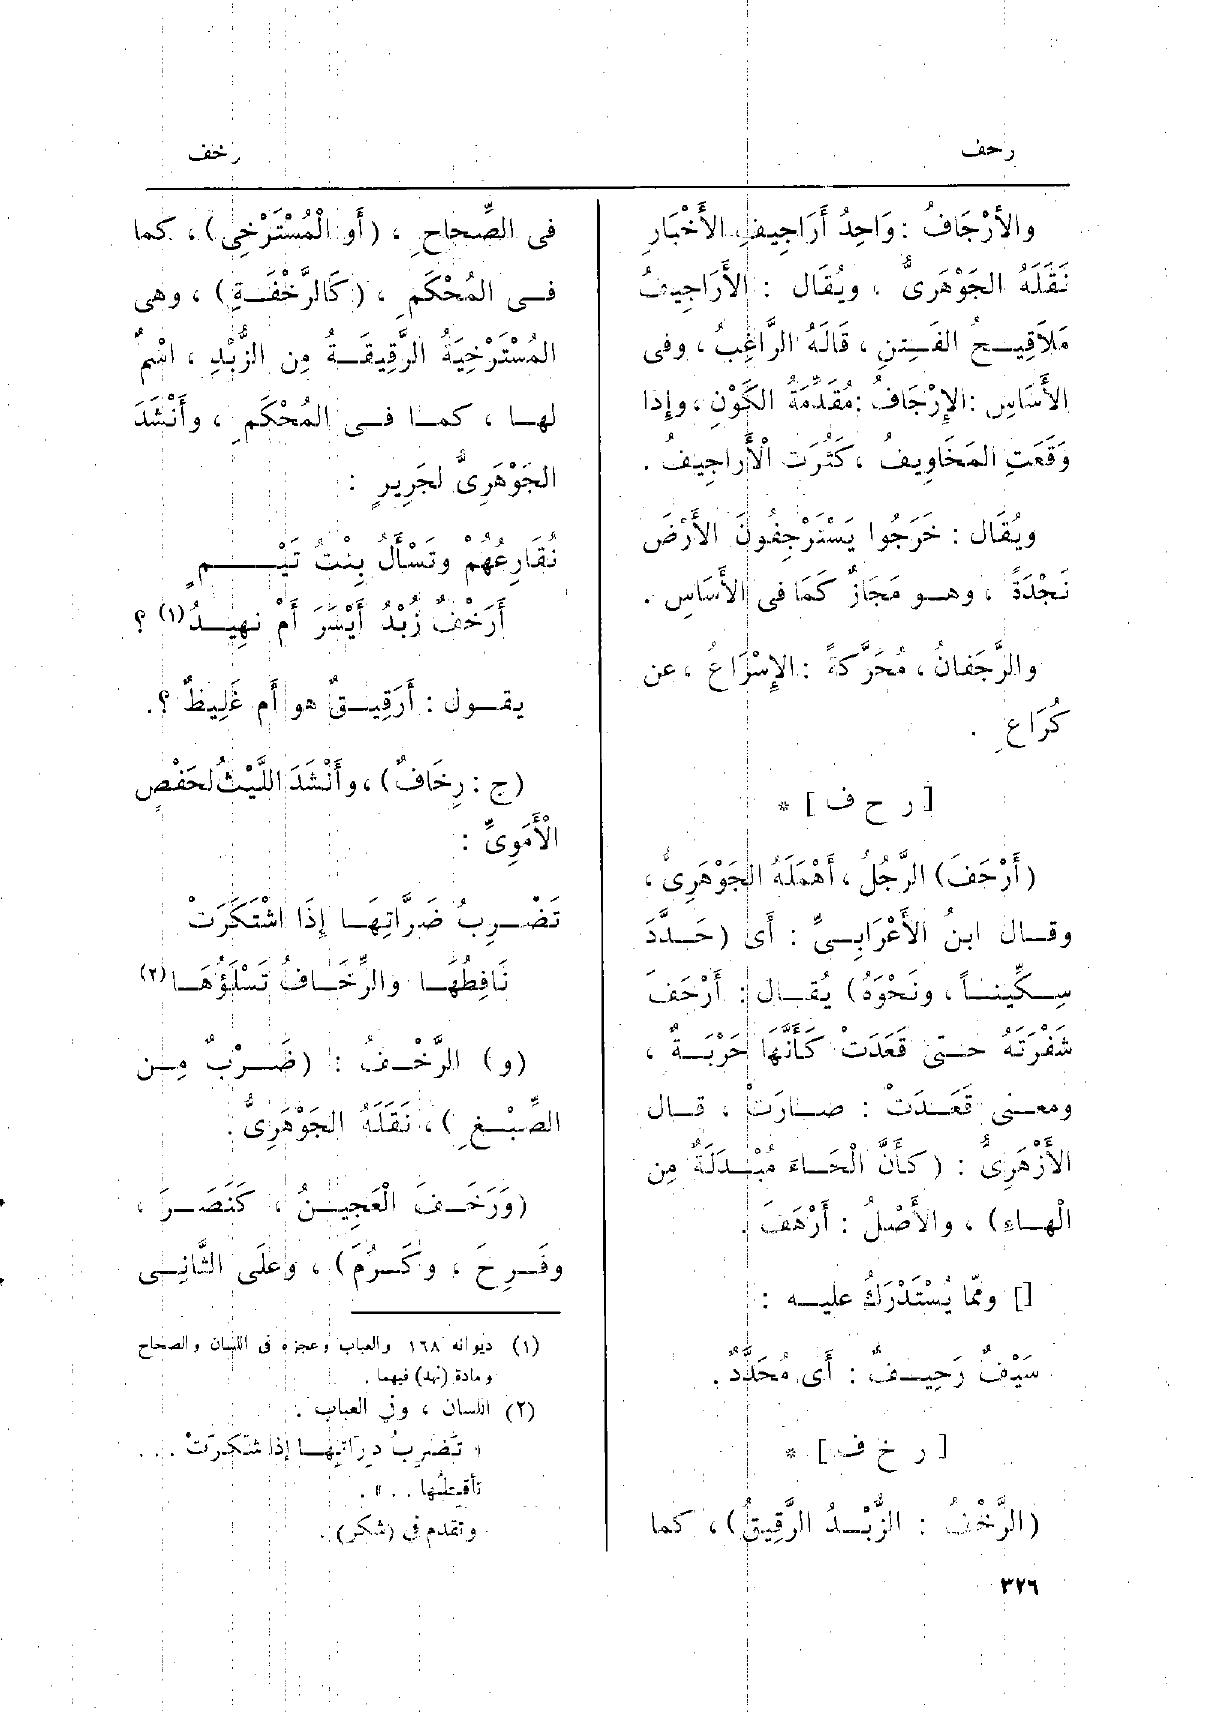 رحف
رخف
والأرْجَافُ : وَاحِدُ أَرَاجِيفِ الأَخْبَارِ
نَقَلَهُ الجَوْهَرِىُّ ، ويُقَال : الأَرَاجِيفُ
مَلَاقِيـحُ الفَـتِنِ ، قَالَهُ الرَّاغِبُ ، وفى
الأَسَاسِ : الإِرْجَافُ : مُقَدِّمَةُ الكَوْنِ ، وإِذا
وَقَعَتِ المَخَاوِيفُ ، كَثُرَت الْأَراجِيفُ .
ويُقَال : خَرَجُوا يَسْتَرْجِفُونَ الأَرْضَ
نَجْدَةً ، وهـو مَجَازٌ كَمَا فى الأَسَاسِ .
والرَّجَفانُ ، مُحَرَّكةً : الإِسْرَاعُ ، عن
كُرَاعٍ .
[ ر ح ف ] *
(أَرْحَفَ) الرَّجُلُ ، أَهْمَلَهُ الجَوْهَرِىُّ ،
وقـال ابنُ الأَعْرَابِـىِّ : أَى (حَـدَّدَ
سِـكِّينـاً ، ونَحْوَهُ) يُقَـال : أَرْحَفَ
شَفْرَتَهُ حـتى قَعَدَتْ كَأَنَّهَا حَرْبَـةٌ ،
ومعـنى قَعَـدَتْ : صـارَتْ ، قـال
الأَزْهَرِىُّ : (كَأَنَّ الْحَـاءَ مُبْـدَلَةٌ مِن
الْهـاءِ) ، والأَصْلُ : أَرْهَفَ .
[] وممّا يُسْتَدْرَكُ عليـه :
سَيْفٌ رَحِيـفٌ : أَى مُحَدَّدٌ .
[ ر خ ف ] *
(الرَّخْفُ : الزُّبْـدُ الرَّقِيقُ) ، كما
فى الصِّحاحِ ، (أَو الْمُسْتَرْخِى) ، كما
فـى المُحْكَمِ ، (كَالرَّخْفَـةِ) ، وهى
المُسْتَرْخِيَةُ الرَّقِيقَـةُ مِن الزُّبْدِ ، اسْمٌ
لهـا ، كمـا فـى المُحْكَمِ ، وأَنْشَدَ
الجَوْهَرِىُّ لجَرِيرٍ :
نُقَارِعُهُمْ وتَسْأَلُ بِنْتُ تَيْـمٍ
أَرَخْفٌ زُبْدُ أَيْسَرَ أَمْ نهِيـدُ(١) ؟
يقـول : أَرَقِيـقٌ هو أَم غَلِيظٌ ؟ .
(ج : رِخَافٌ) ، وأَنْشَدَ اللَّيْثُ لحَفْصٍ
الْأُمَوِىِّ :
تَضْـرِبُ ضَرَّاتِهَـا إِذَا اشْتَكَرَتْ
نَافِطُهَـا والرِّخَـافُ تَسْلَؤُهَـا(٢)
(و) الرَّخْـفُ : (ضَـرْبٌ مِـن
الصِّبْـغِ) ، نَقَلَهُ الجَوْهَرِىُّ .
(وَرَخَـفَ الْعَجِيـنُ ، كَنَصَـرَ ،
وفَـرِحَ ، وكَـرُمَ) ، وعلَى الثَّانِـى
(١) ديوانه ١٦٨ والعباب وعجزه فى اللسان والصحاح
ومادة (نهد) فيهما .
(٢) اللسان ، وفي العباب .
« تَضربُ دِرَاتِهـا إذا شتكرَتْ . . .
تأقيطُها . . » .
وتقدم فى (شكر) .
٣٢٦